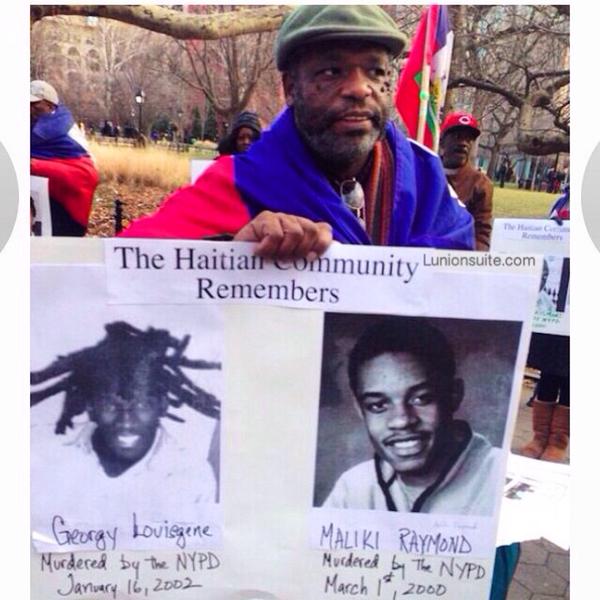 The Haitian Community
Remembers
Lunionsuite.com
Georgy Louisgene
Murdered by the NYPD
January 16, 2002
MALIKI RAYMOND
Murdered by The NYPD
March 1st, 2000
The Haitian
Remembers